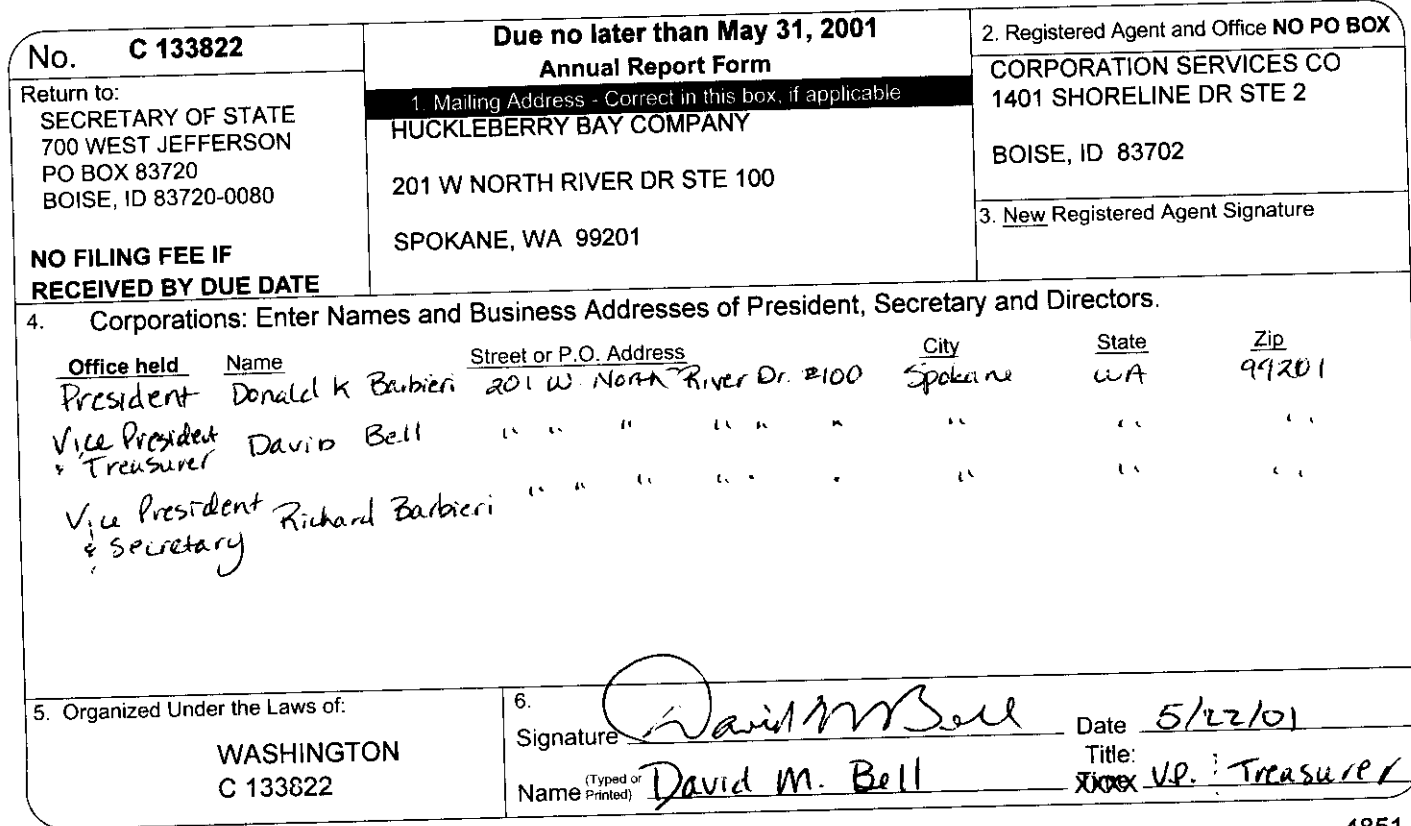 No. C 133822
Return to:
SECRETARY OF STATE
700 WEST JEFFERSON
PO BOX 83720
BOISE, ID 83720-0080
NO FILING FEE IF
RECEIVED BY DUE DATE
Due no later than May 31, 2001
Annual Report Form
1. Mailing Address - Correct in this box, if applicable
HUCKLEBERRY BAY COMPANY
201 W NORTH RIVER DR STE 100
SPOKANE, WA 99201
2. Registered Agent and Office NO PO BOX
CORPORATION SERVICES CO
1401 SHORELINE DR STE 2
BOISE, ID 83702
3. New Registered Agent Signature
4. Corporations: Enter Names and Business Addresses of President, Secretary and Directors.
Office held Name Street or P.O. Address City State Zip
President Donald K Barbieri 201 W. North River Dr. #100 Spokane WA 99201
Vice President David Bell " " " " " " " " "
& Treasurer
Vice President Richard Barbieri " " " " " " " " "
& Secretary
5. Organized Under the Laws of:
WASHINGTON
C 133822
6.
Signature David M Bell Date 5/22/01
Name (Typed or Printed) David M. Bell Title: V.P. : Treasurer
4851